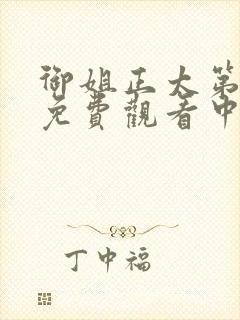 御姐正大第
免費觀看中
丁中福